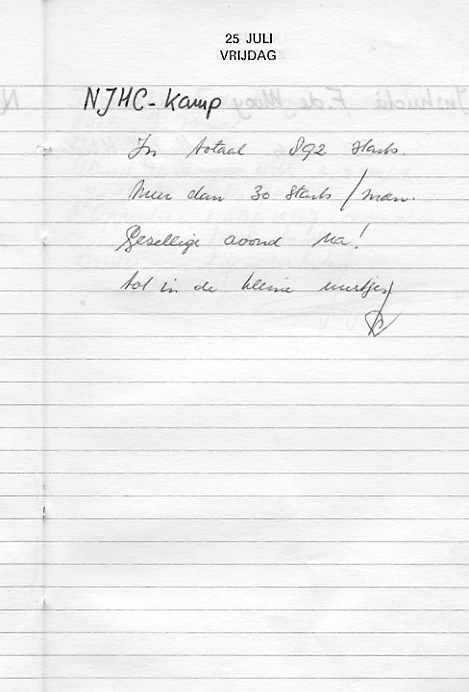 25 JULI
VRIJDAG
NJHC-Kamp
In totaal 892 starts.
Meer dan 30 starts/man.
Gezellige avond na!
tot in de kleine uurtjes